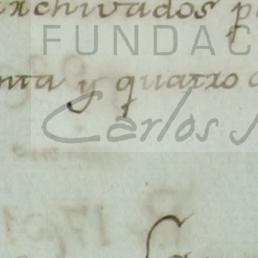 archivados p
FUNDAC
nta y quatro
Carlos